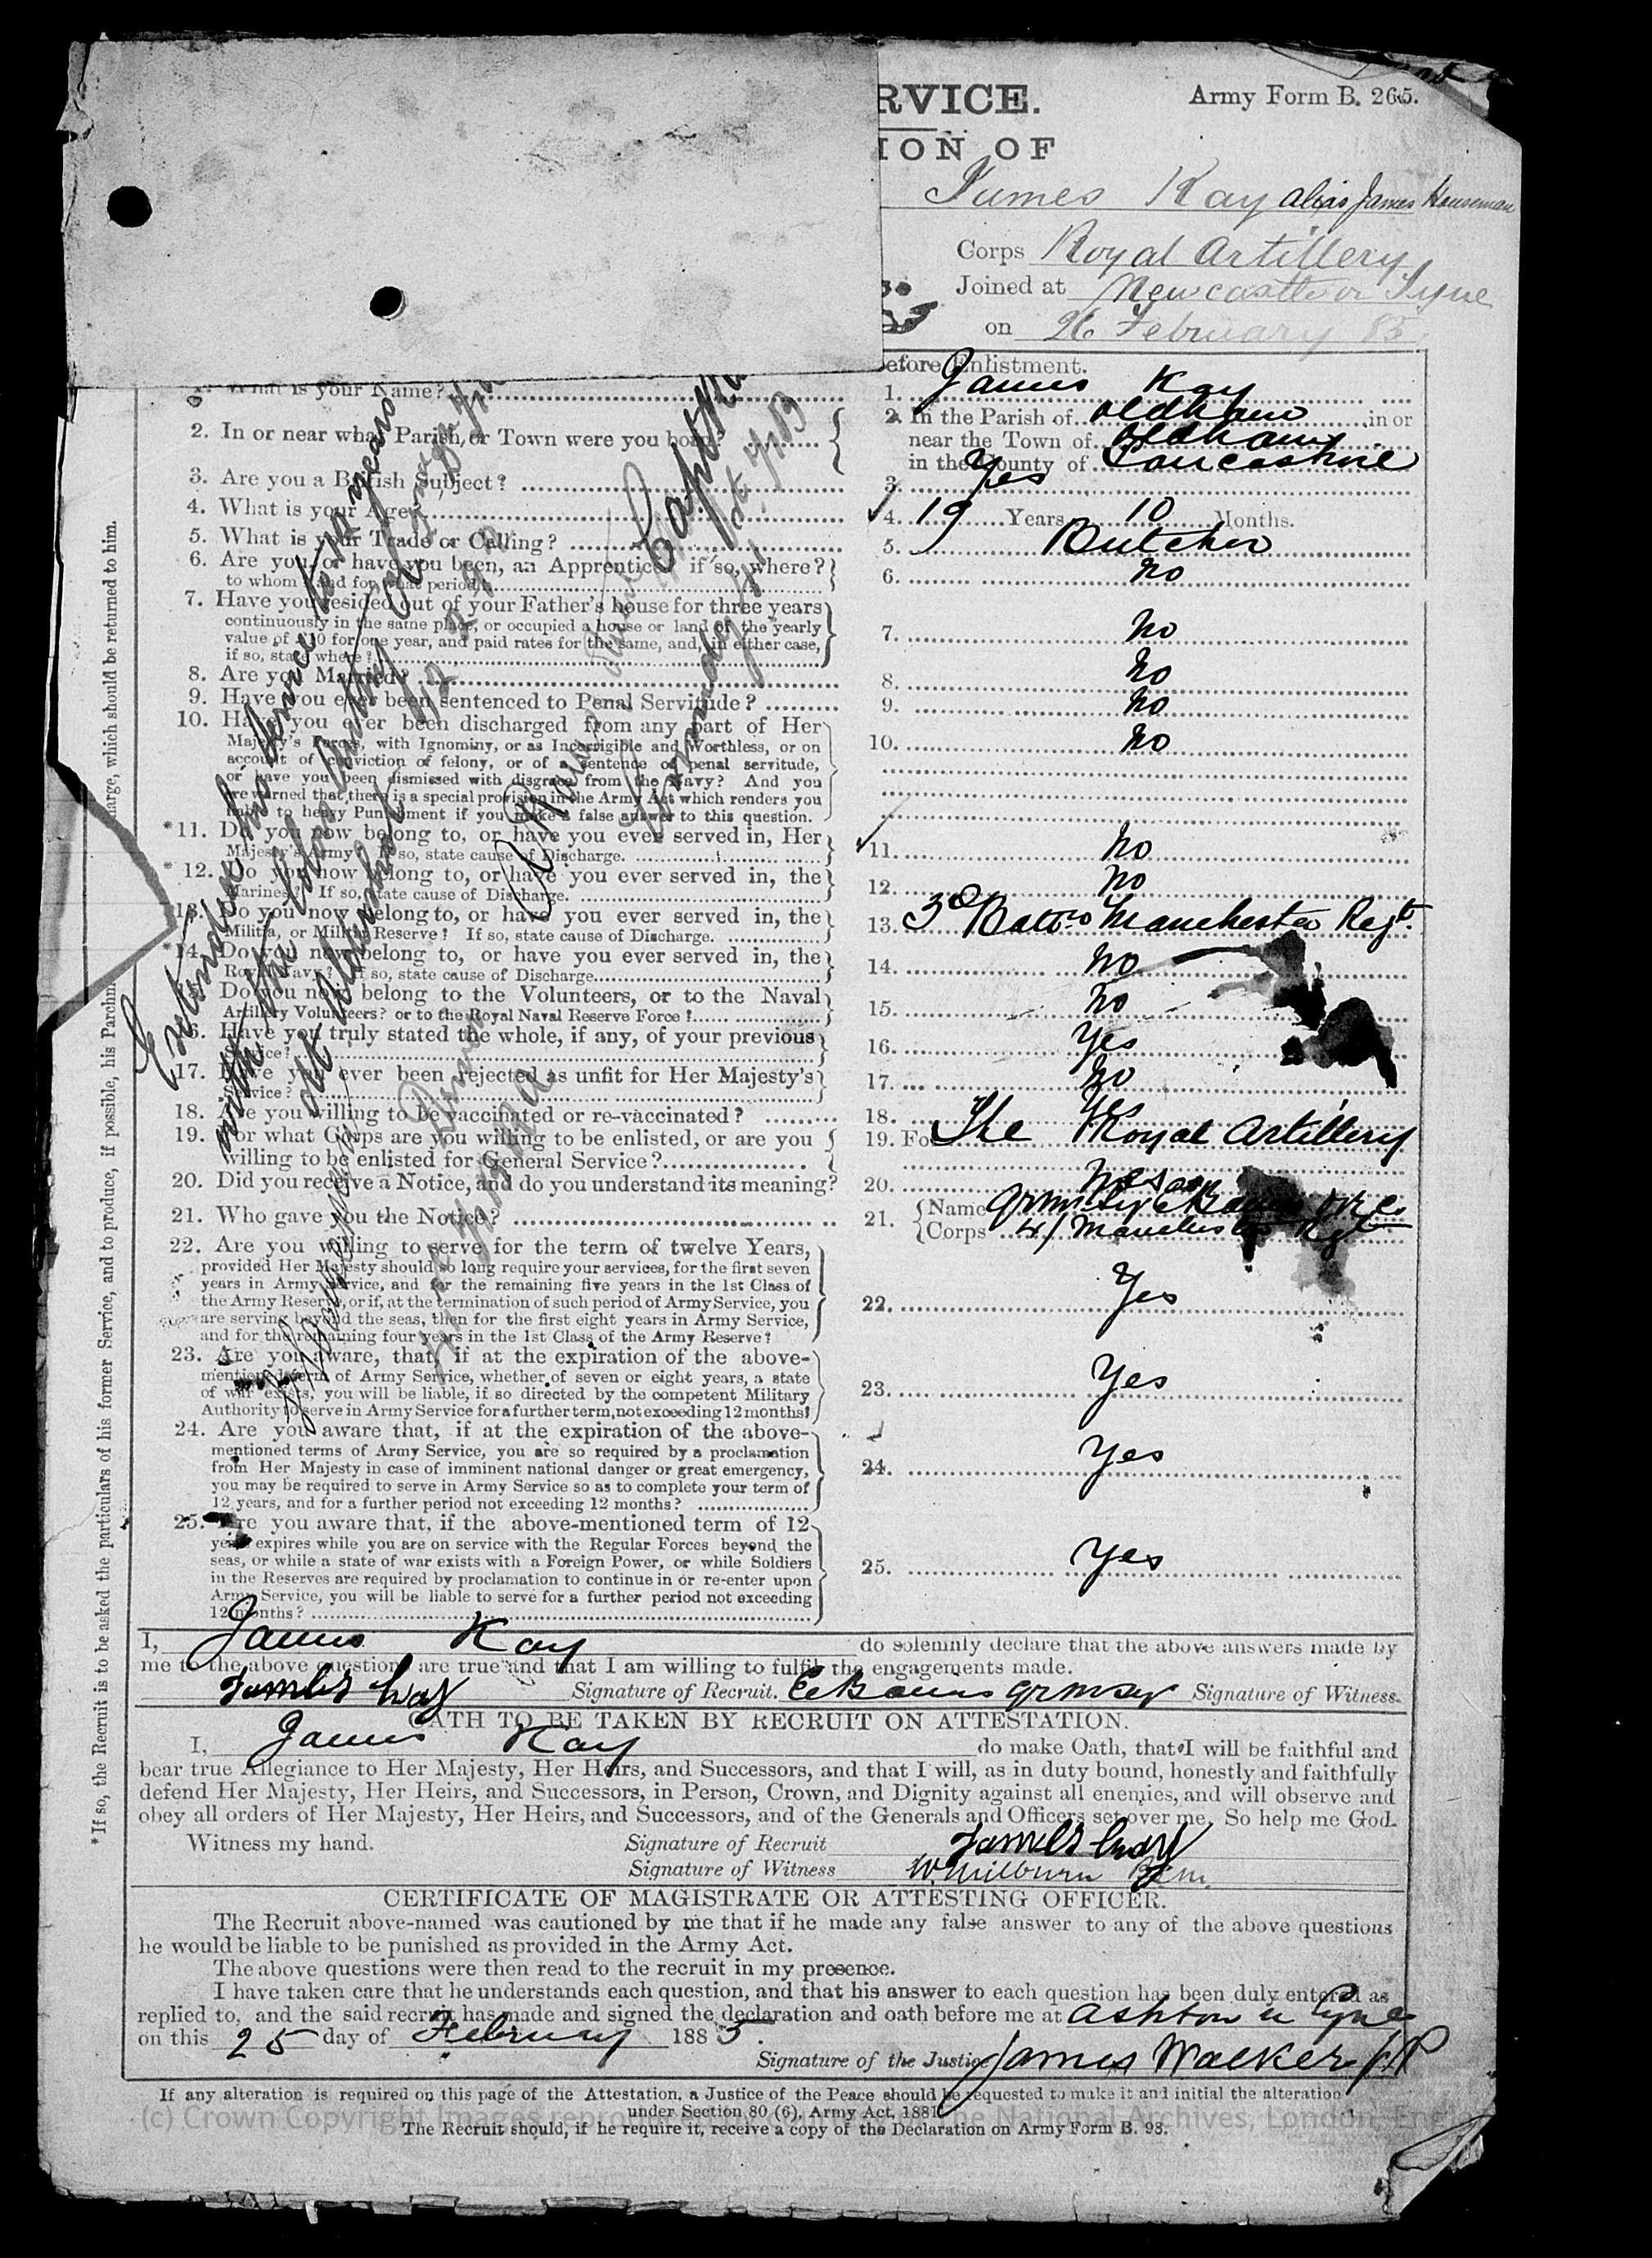 RVICE.
Army Form B. 265.
ION OF
James Kay alias James Houseman
Corps Royal Artillery
Joined at Newcastle on Tyne
on 26 February 85
efore Enlistment.
1. What is your Name?
1. James Kay
2. In or near what Parish, or Town were you born?
2. In the Parish of Oldham in or
near the Town of Oldham
in the County of Lancashire
3. Are you a British Subject?
3. Yes
4. What is your Age?
4. 19 Years 10 Months.
5. What is your Trade or Calling?
5. Butcher
6. Are you, or have you been, an Apprentice? if so, where?
to whom? and for what period?
6. No
7. Have you resided out of your Father's house for three years
continuously in the same place, or occupied a house or land of the yearly
value of £10 for one year, and paid rates for the same, and, in either case,
if so, state where?
7. No
8. Are you Married?
8. No
9. Have you ever been sentenced to Penal Servitude?
9. No
10. Have you ever been discharged from any part of Her
Majesty's Forces, with Ignominy, or as Incorrigible and Worthless, or on
account of conviction of felony, or of a sentence of penal servitude,
or have you been dismissed with disgrace from the Navy? And you
are warned that there is a special provision in the Army Act which renders you
liable to heavy Punishment if you make a false answer to this question.
10. No
*11. Do you now belong to, or have you ever served in, Her
Majesty's Army? If so, state cause of Discharge.
11. No
*12. Do you now belong to, or have you ever served in, the
Marines? If so, state cause of Discharge.
12. No
*13. Do you now belong to, or have you ever served in, the
Militia, or Militia Reserve? If so, state cause of Discharge.
13. 3d Battn Manchester Regt.
*14. Do you now belong to, or have you ever served in, the
Royal Navy? If so, state cause of Discharge.
14. No
15. Do you now belong to the Volunteers, or to the Naval
Artillery Volunteers? or to the Royal Naval Reserve Force?
15. No
16. Have you truly stated the whole, if any, of your previous
Service?
16. Yes
17. Have you ever been rejected as unfit for Her Majesty's
Service?
17. No
18. Are you willing to be vaccinated or re-vaccinated?
18. Yes
19. For what Corps are you willing to be enlisted, or are you
willing to be enlisted for General Service?
19. For The Royal Artillery
20. Did you receive a Notice, and do you understand its meaning?
20. Yes
21. Who gave you the Notice?
21. Name
Corps 4/ Manchester Regt
22. Are you willing to serve for the term of twelve Years,
provided Her Majesty should so long require your services, for the first seven
years in Army Service, and for the remaining five years in the 1st Class of
the Army Reserve, or if, at the termination of such period of Army Service, you
are serving beyond the seas, then for the first eight years in Army Service,
and for the remaining four years in the 1st Class of the Army Reserve?
22. Yes
23. Are you aware, that, if at the expiration of the above-
mentioned term of Army Service, whether of seven or eight years, a state
of war exists, you will be liable, if so directed by the competent Military
Authority to serve in Army Service for a further term, not exceeding 12 months?
23. Yes
24. Are you aware that, if at the expiration of the above-
mentioned terms of Army Service, you are so required by a proclamation
from Her Majesty in case of imminent national danger or great emergency,
you may be required to serve in Army Service so as to complete your term of
12 years, and for a further period not exceeding 12 months?
24. Yes
25. Are you aware that, if the above-mentioned term of 12
years expires while you are on service with the Regular Forces beyond the
seas, or while a state of war exists with a Foreign Power, or while Soldiers
in the Reserves are required by proclamation to continue in or re-enter upon
Army Service, you will be liable to serve for a further period not exceeding
12 months?
25. Yes
Extended his Service to 12 years
with the
*If so, the Recruit is to be asked the particulars of his former Service, and to produce, if possible, his Parchm harge, which should be returned to him.
I, James Kay do solemnly declare that the above answers made by
me to the above questions are true and that I am willing to fulfil the engagements made.
James Kay Signature of Recruit. Signature of Witness.
OATH TO BE TAKEN BY RECRUIT ON ATTESTATION.
I, James Kay do make Oath, that I will be faithful and
bear true Allegiance to Her Majesty, Her Heirs, and Successors, and that I will, as in duty bound, honestly and faithfully
defend Her Majesty, Her Heirs, and Successors, in Person, Crown, and Dignity against all enemies, and will observe and
obey all orders of Her Majesty, Her Heirs, and Successors, and of the Generals and Officers set over me. So help me God.
Witness my hand. Signature of Recruit James Kay
Signature of Witness W. Milburn
CERTIFICATE OF MAGISTRATE OR ATTESTING OFFICER.
The Recruit above-named was cautioned by me that if he made any false answer to any of the above questions
he would be liable to be punished as provided in the Army Act.
The above questions were then read to the recruit in my presence.
I have taken care that he understands each question, and that his answer to each question has been duly entered as
replied to, and the said recruit has made and signed the declaration and oath before me at Ashton u Lyne
on this 25 day of February 1885.
Signature of the Justice James Walker JP
If any alteration is required on this page of the Attestation, a Justice of the Peace should be requested to make it and initial the alteration
under Section 80 (6), Army Act, 1881.
The Recruit should, if he require it, receive a copy of the Declaration on Army Form B. 98.
(c) Crown Copyright Images reproduced by courtesy of The National Archives, London, England